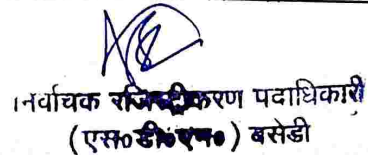 निर्वाचक रजिस्ट्रीकरण पदाधिकारी
(एस० डी० एम०) बसेडी